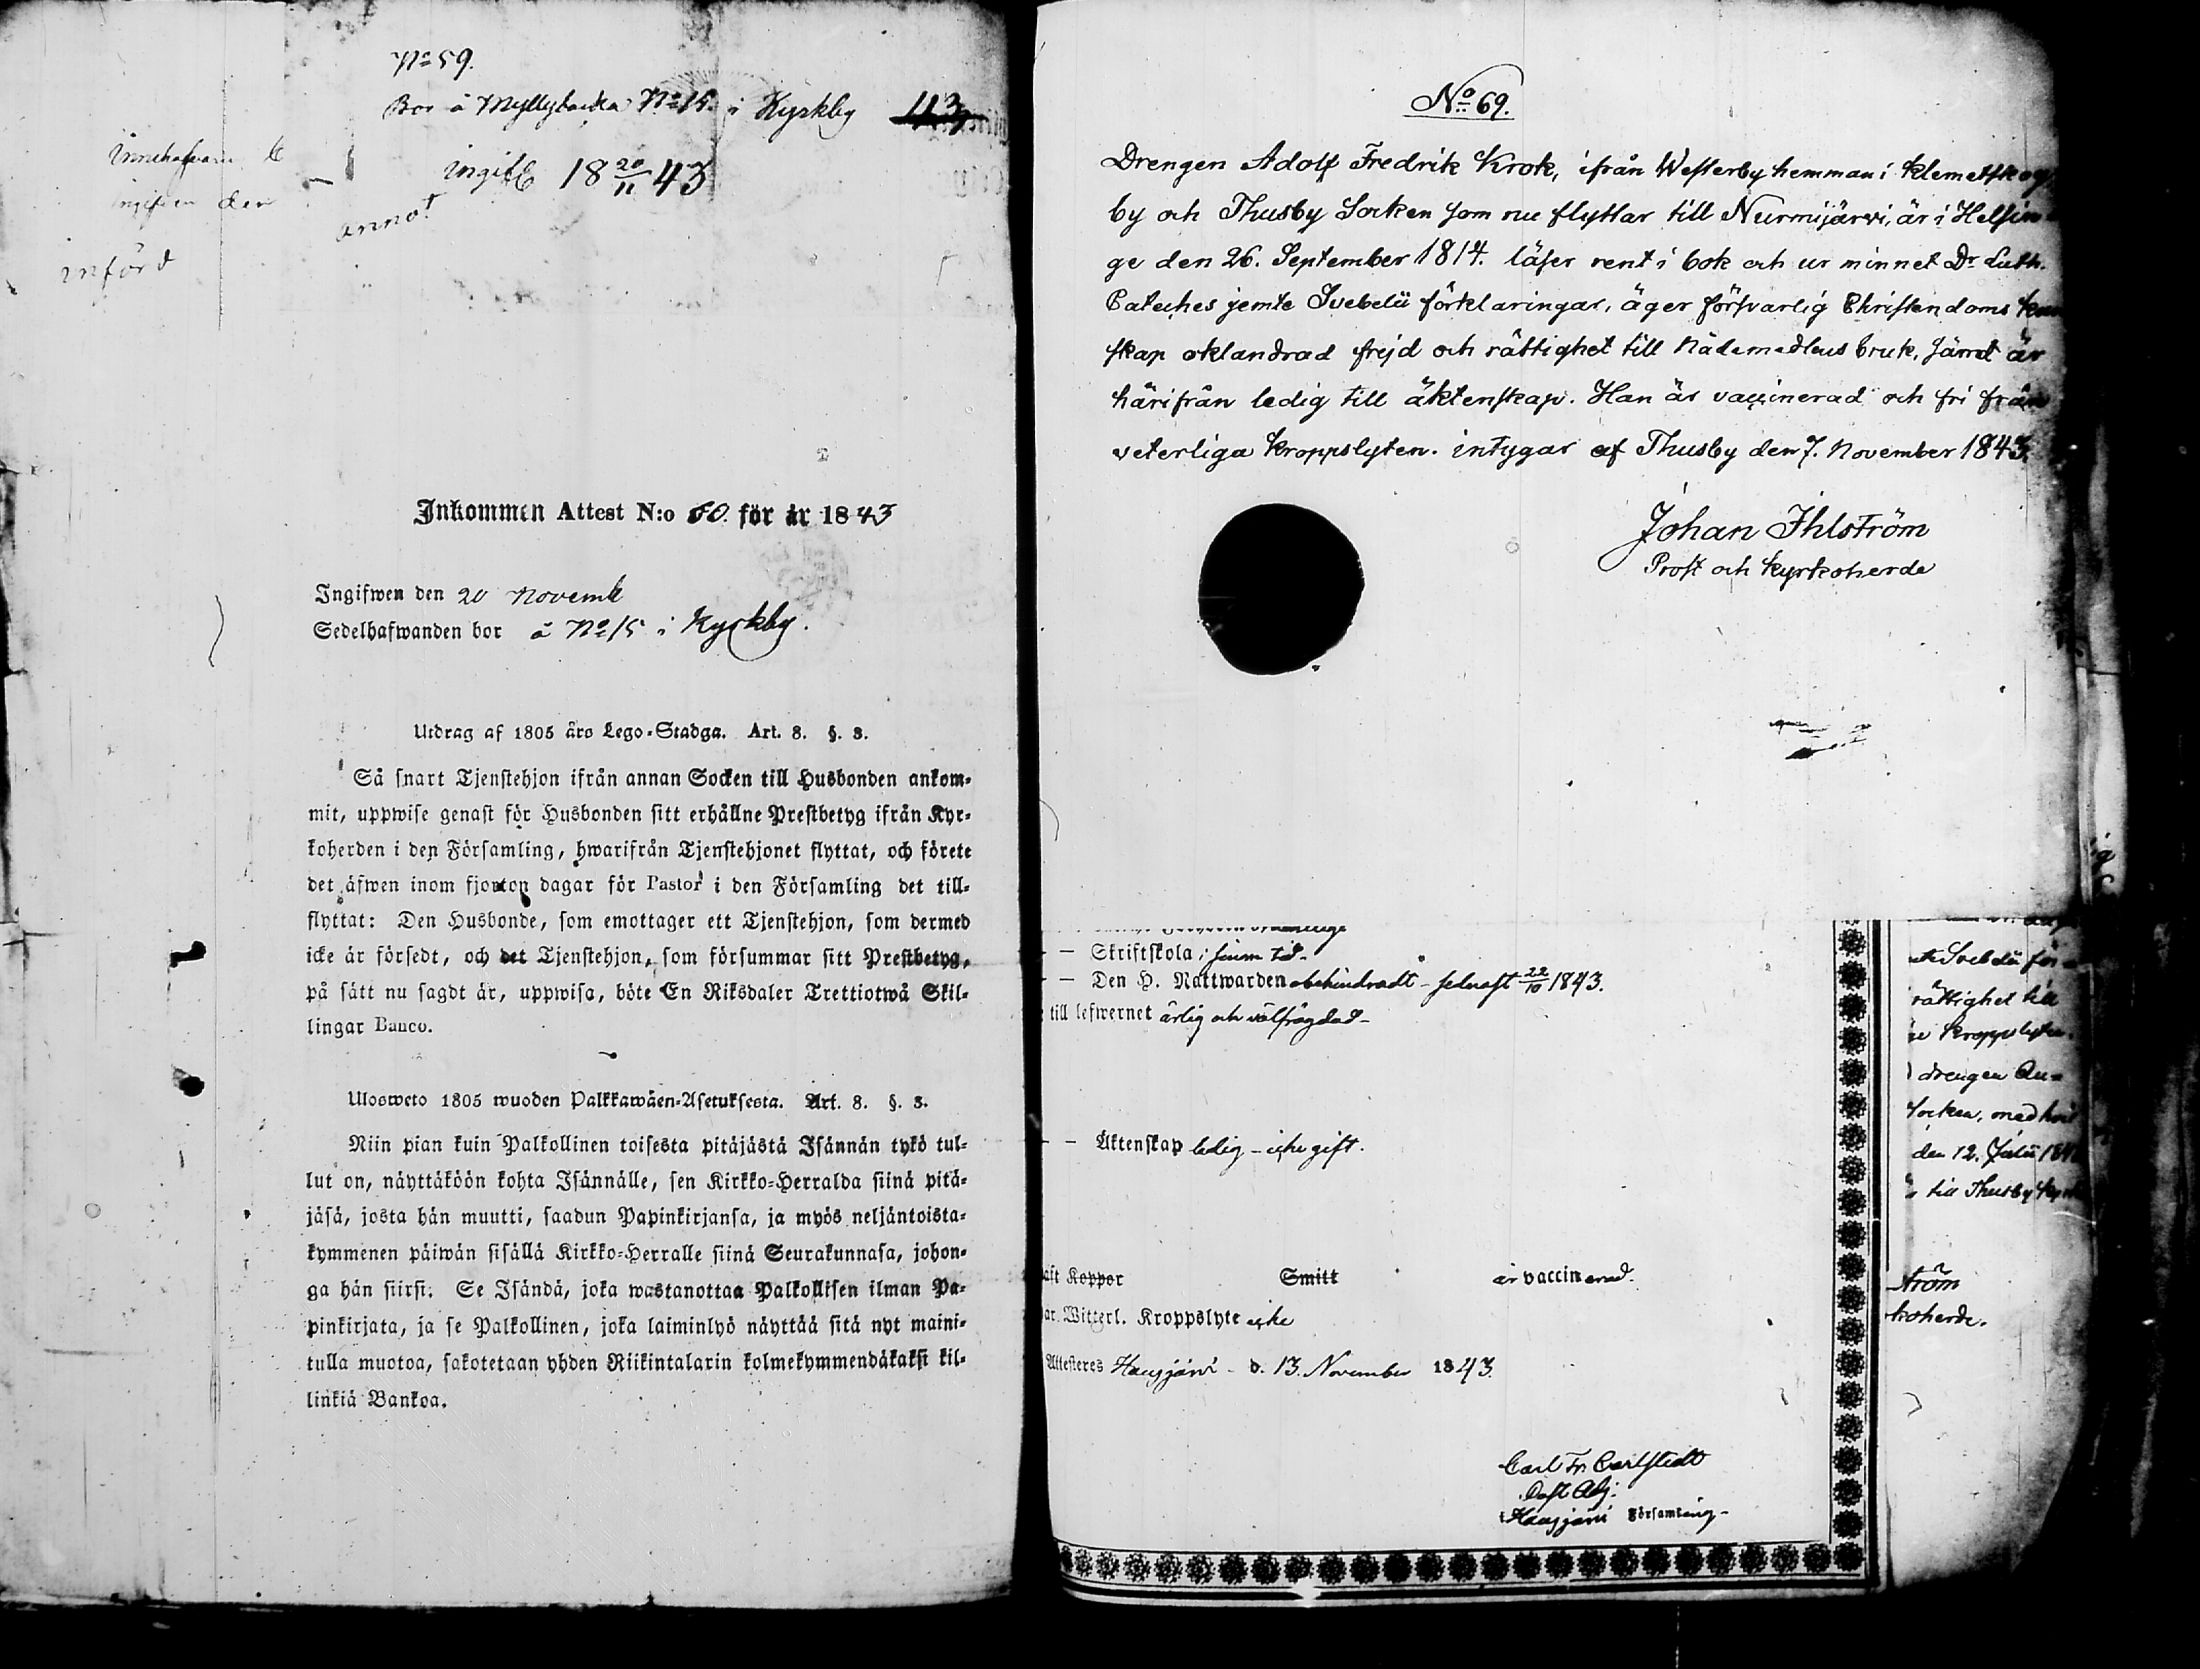 No 59.
Bor å Myllybacka No 15. i Kyrkby 43
ingifv 18 20/11 43
annot
innehafvaren
ingifven den
införd
Inkommen Attest N:o 60. för år 1843
Ingifwen den 20 Novemb
Sedelhafwanden bor å No 15 i Kyrkby.
Utdrag af 1805 års Lego-Stadga. Art. 8. §. 3.
Så snart Tjenstehjon ifrån annan Socken till Husbonden ankom-
mit, uppwise genast för Husbonden sitt erhållne Prestbetyg ifrån Kyr-
koherden i den Församling, hwarifrån Tjenstehjonet flyttat, och förete
det äfwen inom fjorton dagar för Pastor i den Församling det till-
flyttat: Den Husbonde, som emottager ett Tjenstehjon, som dermed
icke är försedt, och det Tjenstehjon, som försummar sitt Prestbetyg,
på sätt nu sagdt är, uppwisa, böte En Riksdaler Trettiotwå Skil-
lingar Banco.
Ulosweto 1805 wuoden Palkkawäen-Asetuksesta. Art. 8. §. 3.
Niin pian kuin Palkollinen toisesta pitäjästä Isännän tykö tul-
lut on, näyttäköön kohta Isännälle, sen Kirkko-Herralda siinä pitä-
jäsä, josta hän muutti, saadun Papinkirjansa, ja myös neljäntoista-
kymmenen päiwän sisällä Kirkko-Herralle siinä Seurakunnasa, johon-
ga hän siirsi. Se Isändä, joka wastanottaa Palkollisen ilman Pa-
pinkirjata, ja se Palkollinen, joka laiminlyö näyttää sitä nyt maini-
tulla muotoa, sakotetaan yhden Riikintalarin kolmekymmendäkaksi kil-
linkiä Bankoa.
No 69.
Drengen Adolf Fredrik Krok, ifrån Westerby hemman i Klemetskog
by och Thusby Socken som nu flyttar till Nurmijärvi, är i Helsin-
ge den 26. September 1814. läser rent i bok och ur minnet Dr Luth.
Cateches jemte Svebelii förklaringar, äger försvarlig Christendoms kun
skap oklandrad frejd och rättighet till Nådemedlens bruk, samt är
härifrån ledig till äktenskap. Han är vaccinerad och fri från
veterliga kroppslyten. intygar af Thusby den 7. November 1843.
Johan Ihlström
Prost och Kyrkoherde
— Skriftskola i sinom tid.
— Den H. Nattwarden obehindradt - sednast 22/10 1843.
till lefwernet ärlig och välfrägdad -
— Äktenskap ledig - icke gift.
haft Koppor Smitt är vaccinerad.
har Witterl. Kroppslyte icke
Attesteres Hausjärvi - d. 13. November 1843.
Carl Fr. Carlstedt
Past Adj.
i Hausjärvi Församling -
Svebelii för
rättighet till
kroppslyten.
drengen An-
Socken, med
den 12. Julii 184
till Thusby
ström
koherde.